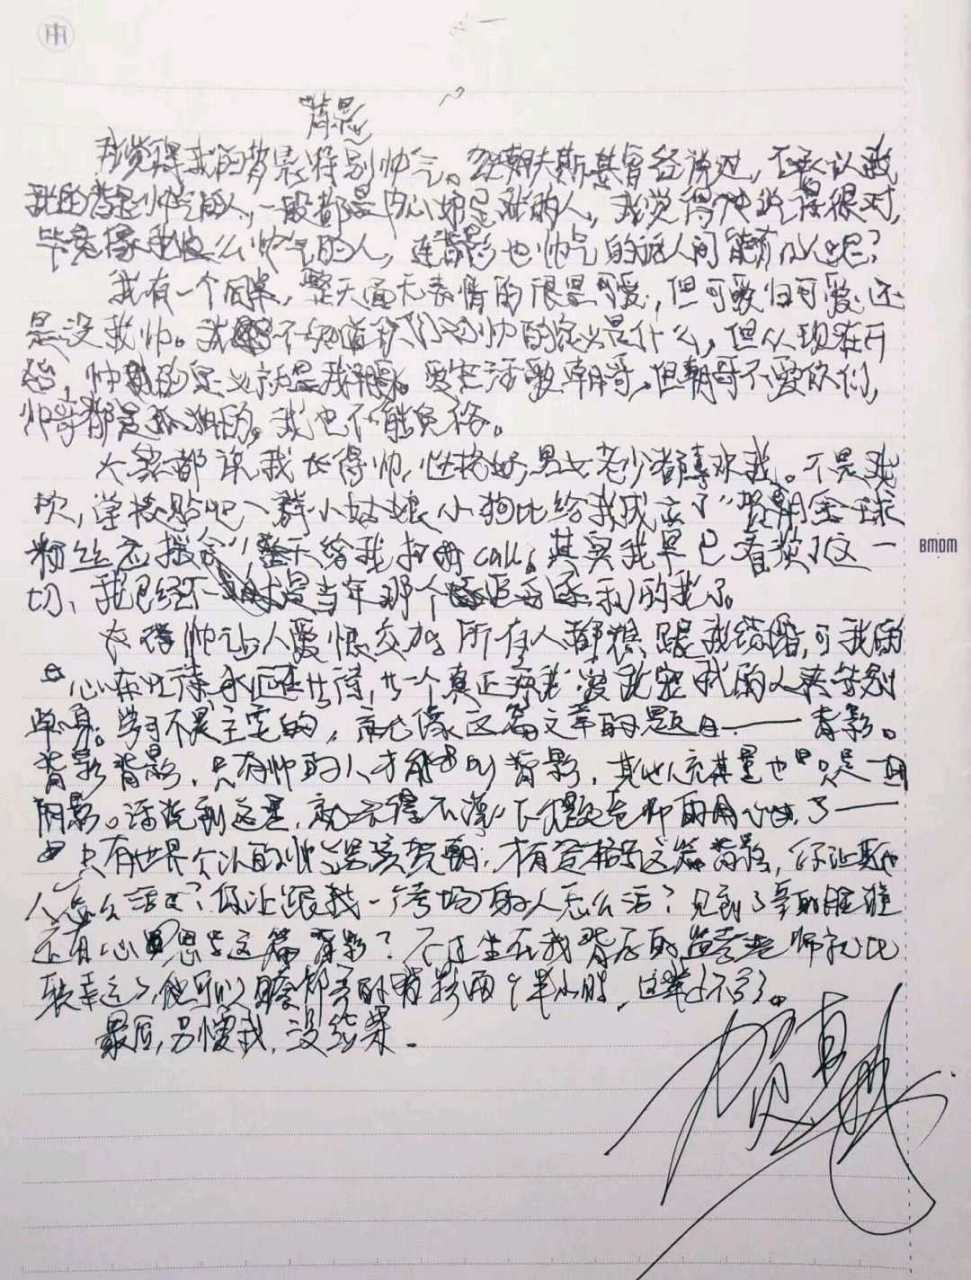 背影
我觉得我的背影特别帅气。贺朝夫斯基曾经说过，不承认我
我的背影帅气的人，一般都是内心妒忌我的人，我觉得他说得很对，
毕竟像我这么帅气的人，连背影也帅气的话人间能有几回？
我有一个同桌，整天面无表情的很是可爱，但可爱归可爱，还
是没我帅。我不知道你们对帅的定义是什么，但从现在开
始，帅的定义就是我。爱生活爱朝哥，但朝哥不爱你们，
帅哥都是孤独的。我也不能免俗。
大家都说我长得帅，性格好，男女老少都喜欢我。不是我
吹，学校贴吧一群小姑娘小狗比给我成立了“贺朝全球
粉丝应援会”整天给我打call，其实我早已看淡了这一
切，我已经不是当年那个的我了。
长得帅让人爱恨交加，所有人都想跟我结婚，可我的
心在等待，永远在等待，一个真正的人来告别
单身。学习不是主要的，就像这篇文章的题目——背影。
背影背影，只有帅的人才能叫背影，其他人充其量也只是一团
阴影。话说到这里，就不得不谈一下出题老师的用心了——
只有世界公认的帅气男孩贺朝，才有资格写这篇背影，你让其他
人怎么活？你让跟我一个考场的人怎么活？见到了哥的脸谁
还有心思写这篇背影？不过坐在我背后的监考老师就比
较幸运了，他可以瞻仰哥的背影两个半小时，
最后，别爱我，没结果。
贺朝
BMDM